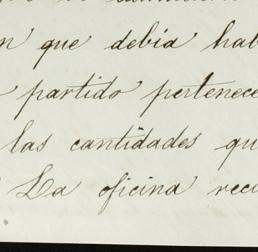 n que debía hab
partido pertenece
las cantidades qu
La oficina rec